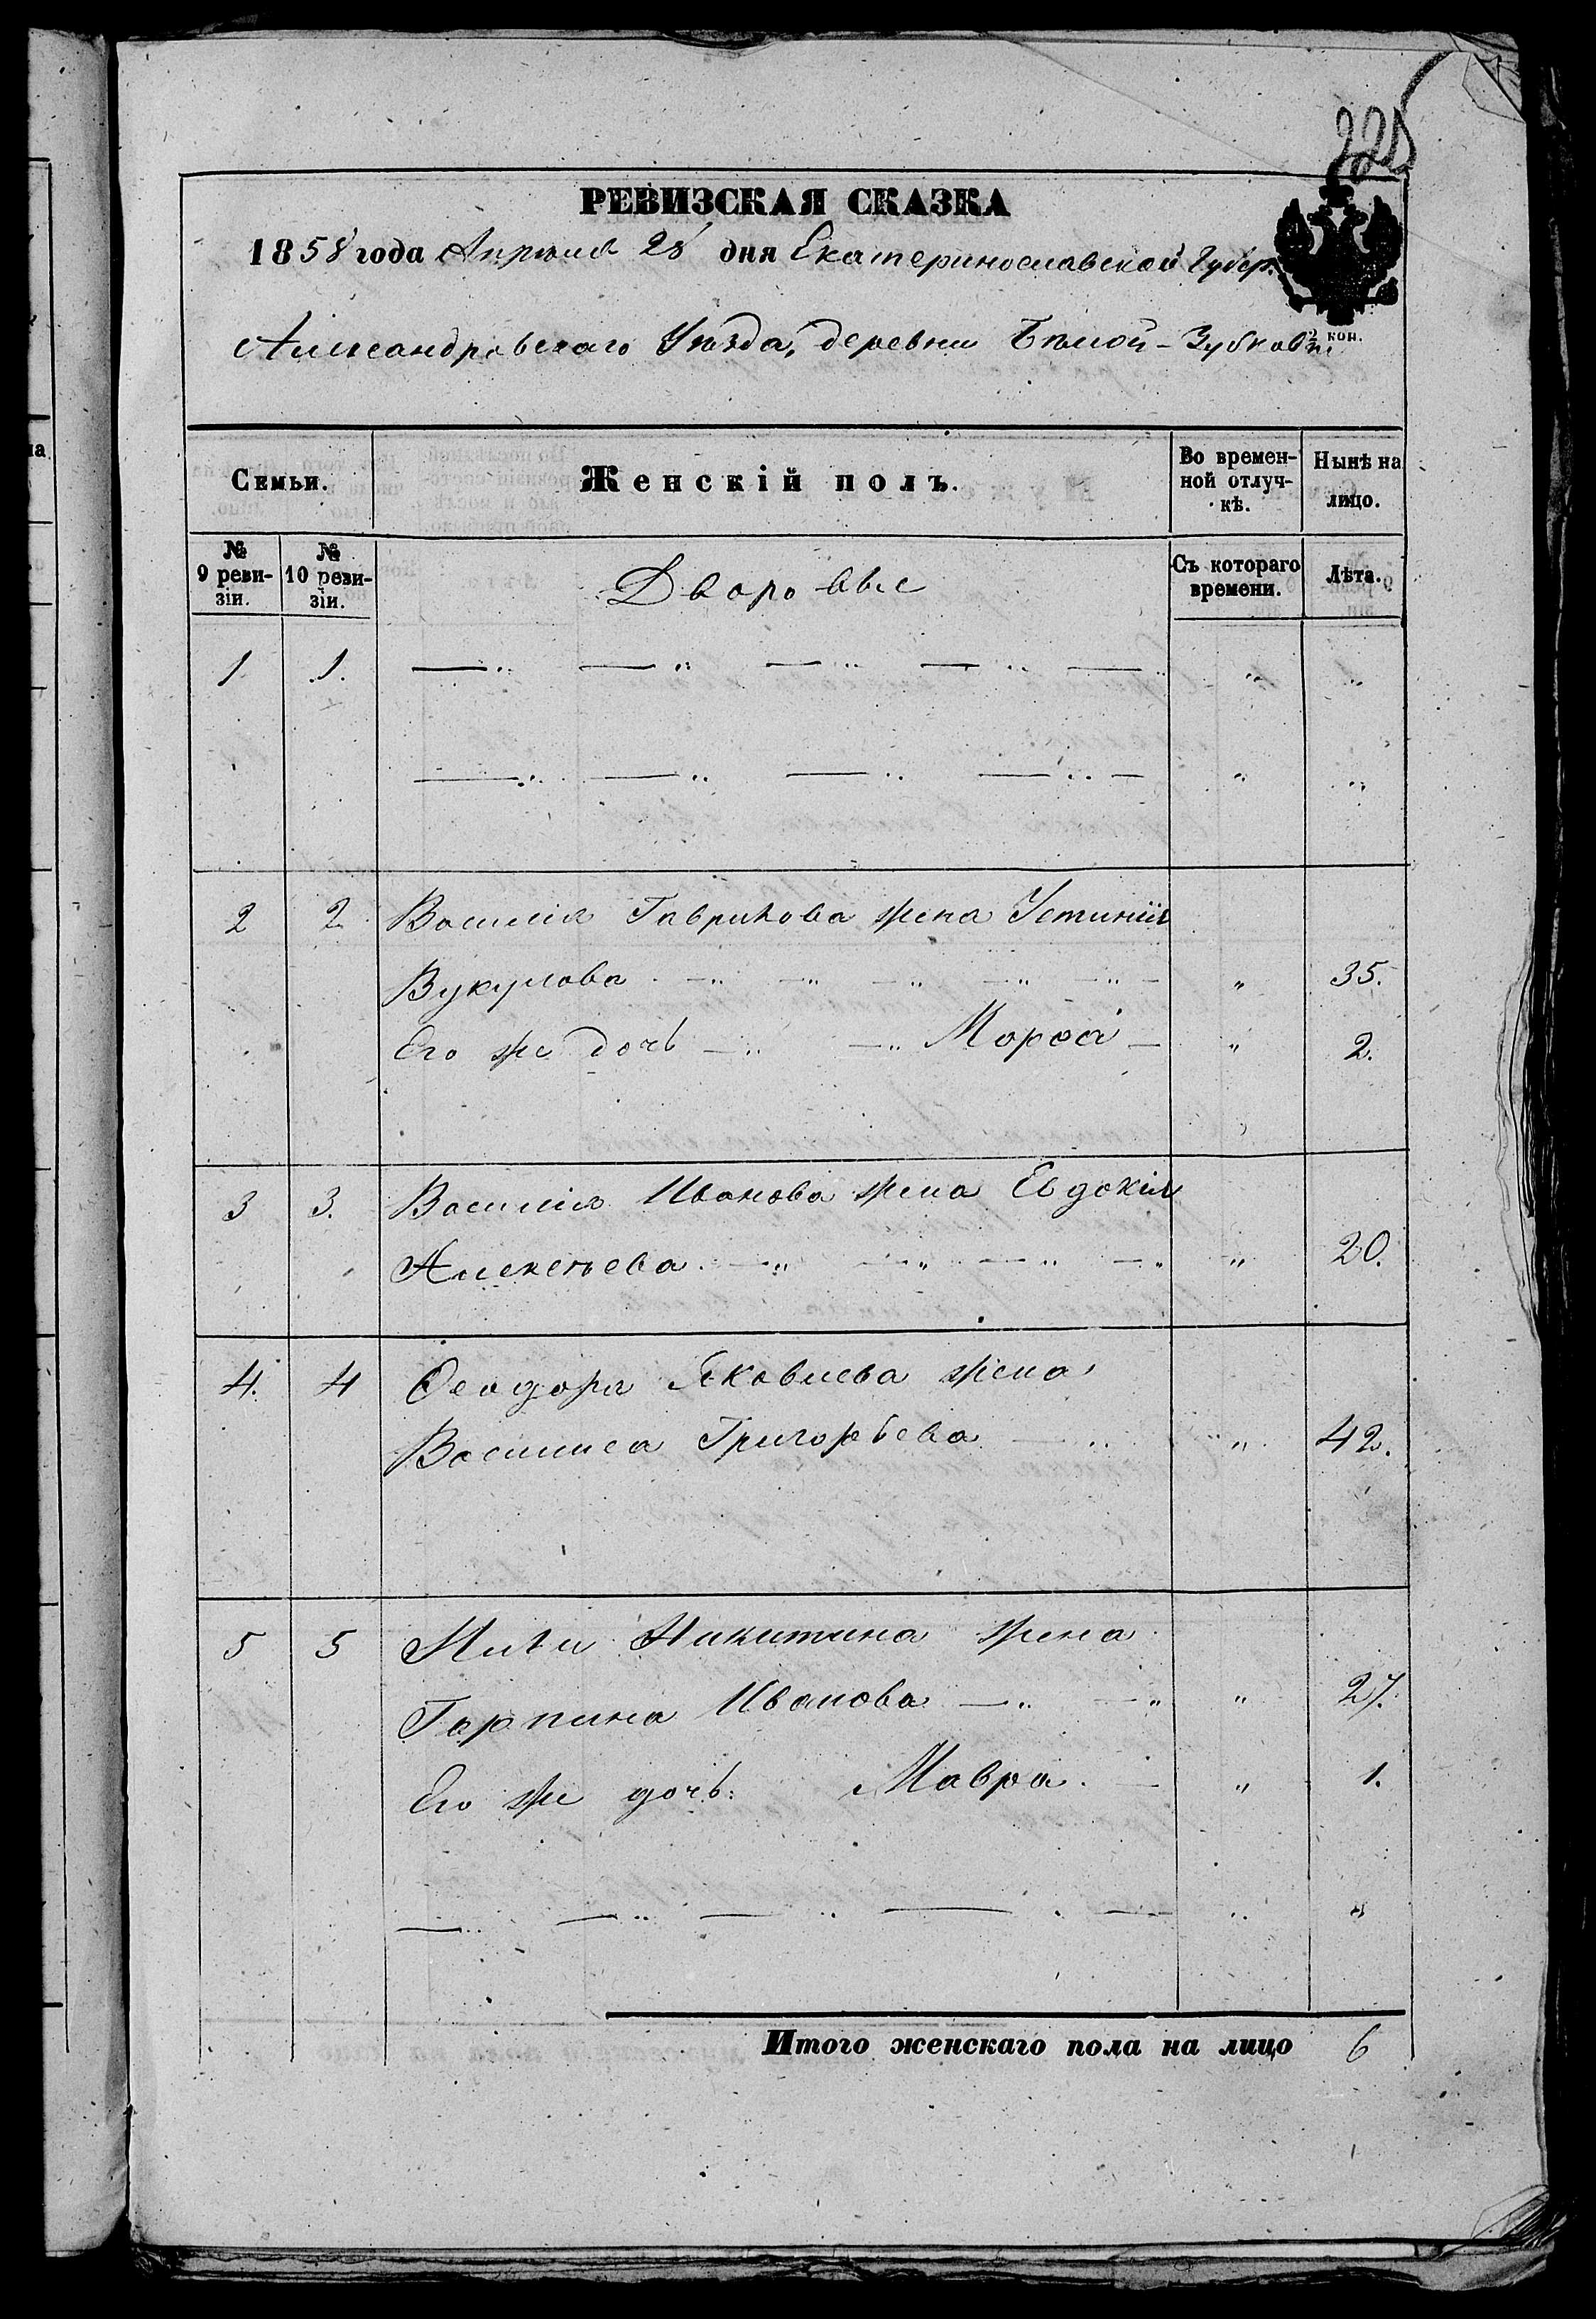 221
РЕВИЗСКАЯ СКАЗКА
1858 года Апрѣля 28 дня Екатеринославской Губер.
Александровскаго Уѣзда, деревни Бѣлой-Зубковки
2 коп.
Семьи.
Женскій полъ.
Во времен-
ной отлуч-
кѣ.
Нынѣ на
лицо.
№
9 реви-
зіи.
№
10 реви-
зіи.
Дворовые
Съ котораго
времени.
Лѣта.
1 1. — „ — „ — „ — „ — „ „
— „ — „ — „ — „ — „ „
2 2 Василія Гаврилова жена Устинія
Вукулова — „ — „ — „ — „ — „ — „ 35.
Его же дочь — „ — „ Марфа — „ 2.
3 3. Василія Иванова жена Евдокія
Алексѣева. — „ — „ — „ — „ „ 20.
4. 4 Ѳеодора Яковлева жена
Василиса Григорьева — „ „ 42.
5 5 Никитина жена
Гарпина Иванова — „ — „ „ 27.
Его же дочь: Мавра. — „ 1.
— „ — „ — „ — „ — „ „
Итого женскаго пола на лицо 6